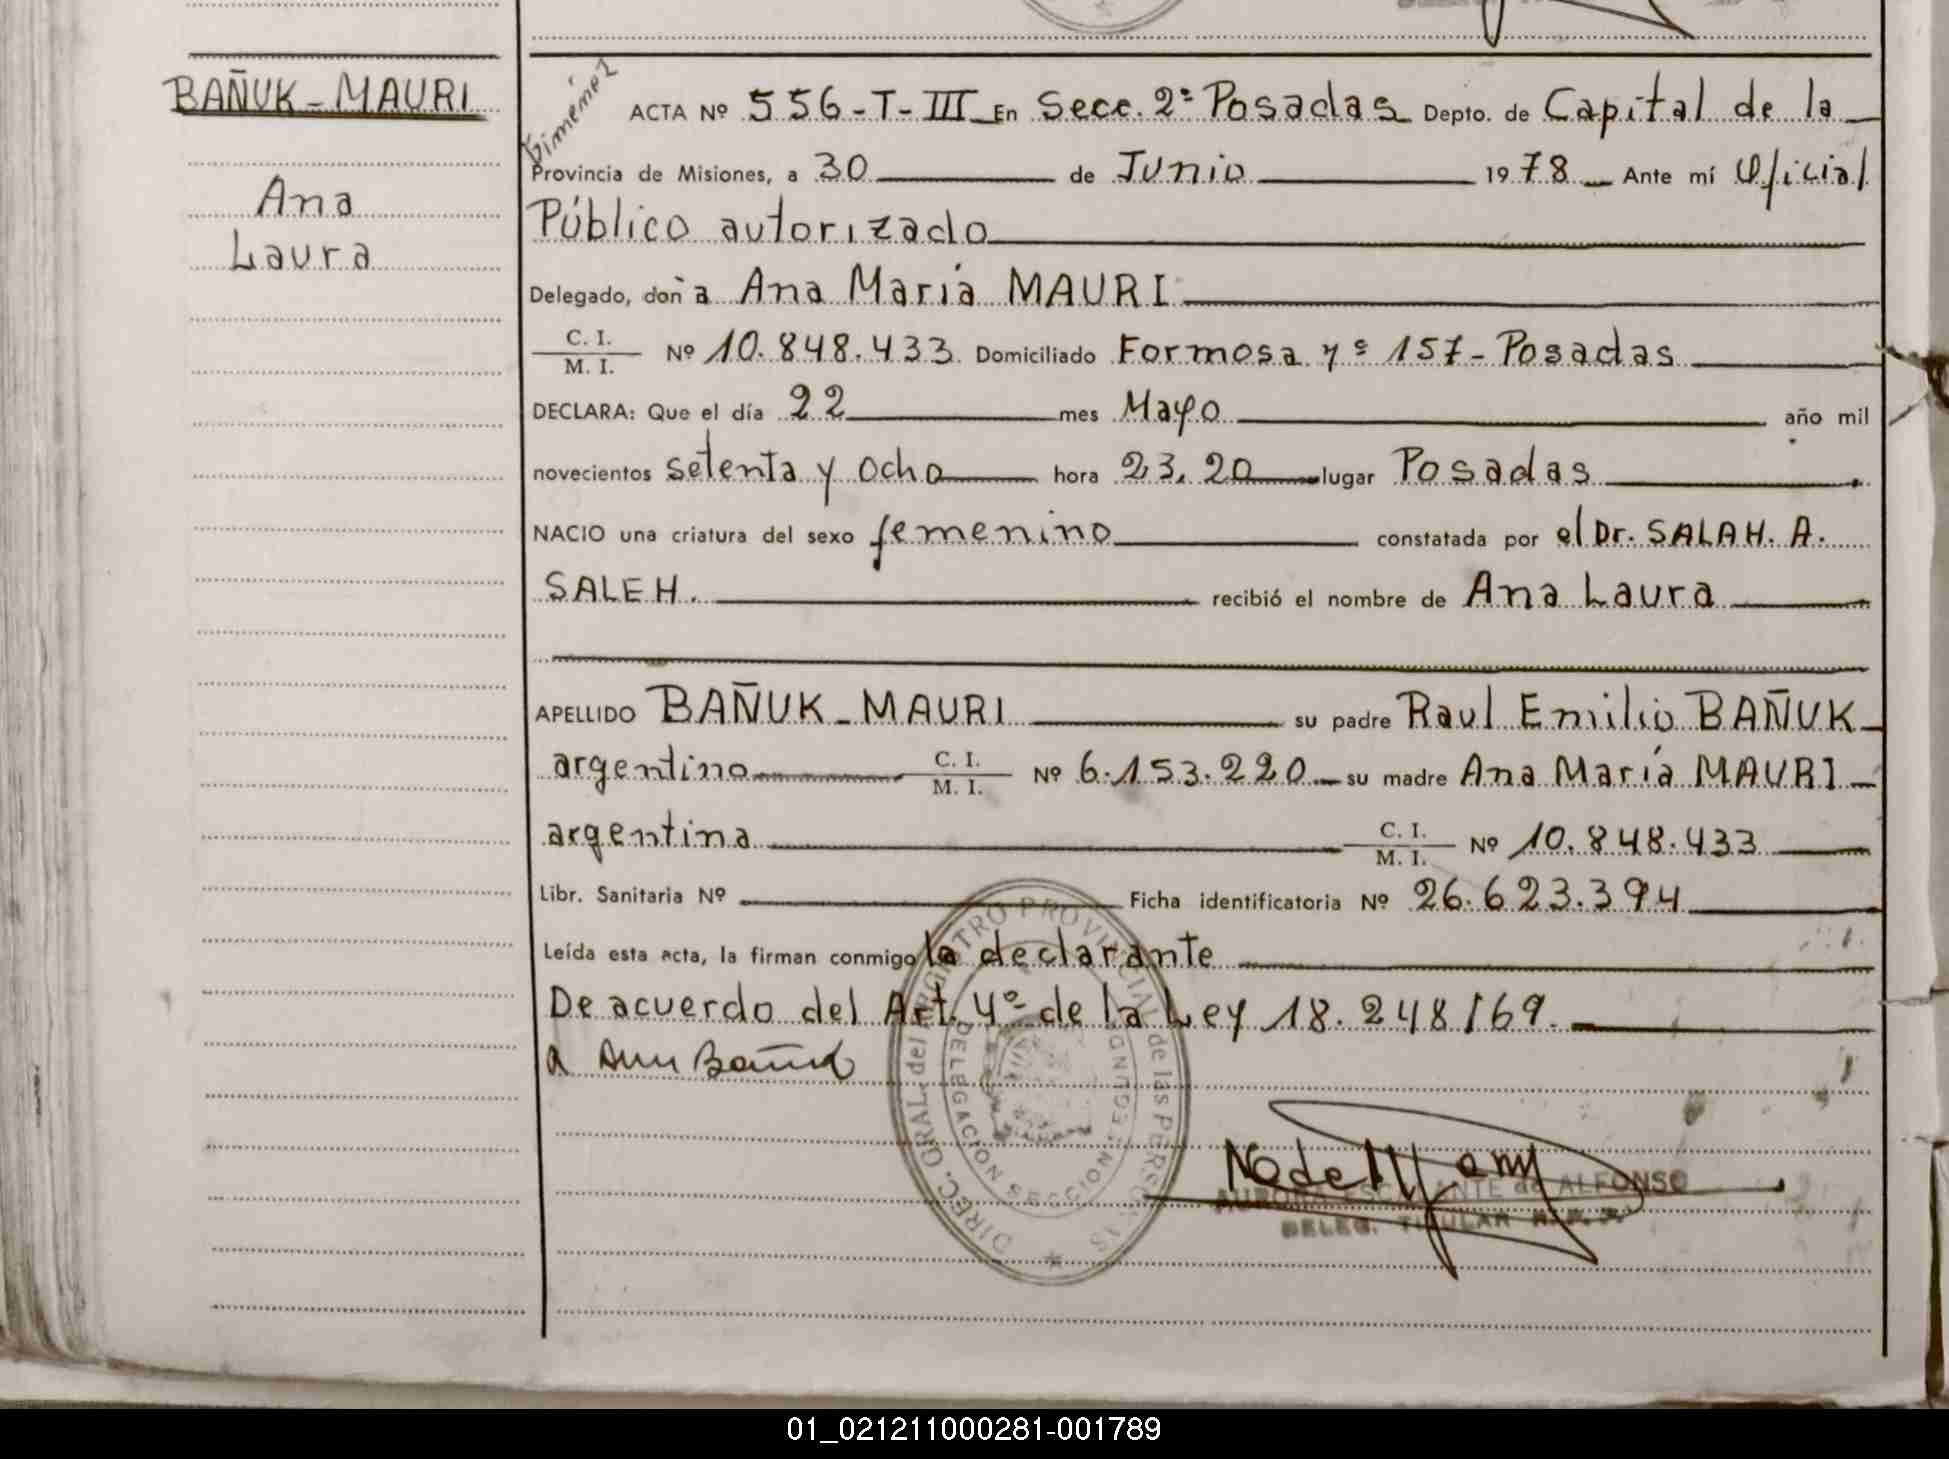 BAÑUK - MAURI
Ana
Laura
Giménez
ACTA Nº 556-T-III En Secc. 2ª Posadas Depto. de Capital de la
Provincia de Misiones, a 30 de Junio 1978 Ante mí Oficial
Público autorizado
Delegado, doña Ana María MAURI
C. I.
M. I. Nº 10.848.433 Domiciliado Formosa nº 157 - Posadas
DECLARA: Que el día 22 mes Mayo año mil
novecientos setenta y ocho hora 23,20 lugar Posadas
NACIO una criatura del sexo femenino constatada por el Dr. SALAH. A.
SALEH. recibió el nombre de Ana Laura
APELLIDO BAÑUK - MAURI su padre Raul Emilio BAÑUK
argentino C. I.
M. I. Nº 6.153.220 su madre Ana María MAURI
argentina C. I.
M. I. Nº 10.848.433
Libr. Sanitaria Nº Ficha identificatoria Nº 26.623.394
Leída esta acta, la firman conmigo la declarante
De acuerdo del Art. 4º de la Ley 18.248/69.
DIREC. GRAL. del REGISTRO PROVINCIAL de las PERSONAS
DELEGACION SECCION
AURORA ESCALANTE de ALFONSO
DELEG. TITULAR R. P. P.
01_021211000281-001789